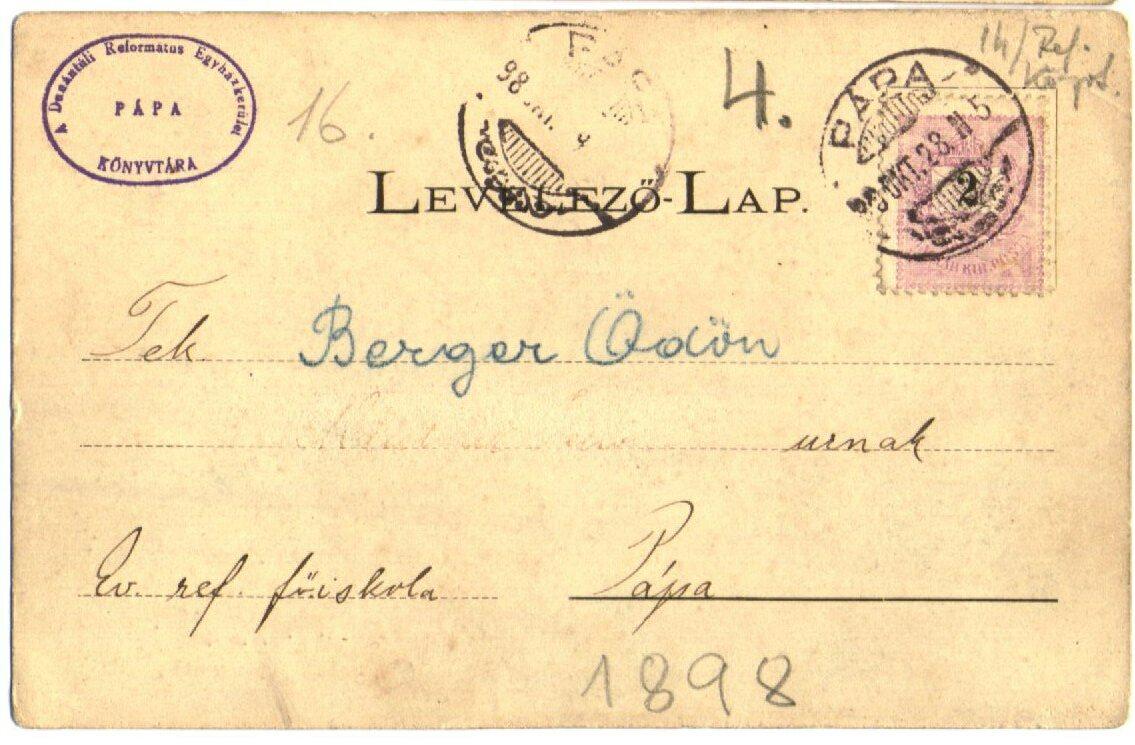 A Dunántúli Református Egyházkerület
PÁPA
KÖNYVTÁRA
16.
98
4.
14/Ref.
PÁPA
OKT. 28. N 5
2
LEVELEZŐ-LAP.
Tek Berger Ödön
urnak
Ev. ref. főiskola Pápa
1898